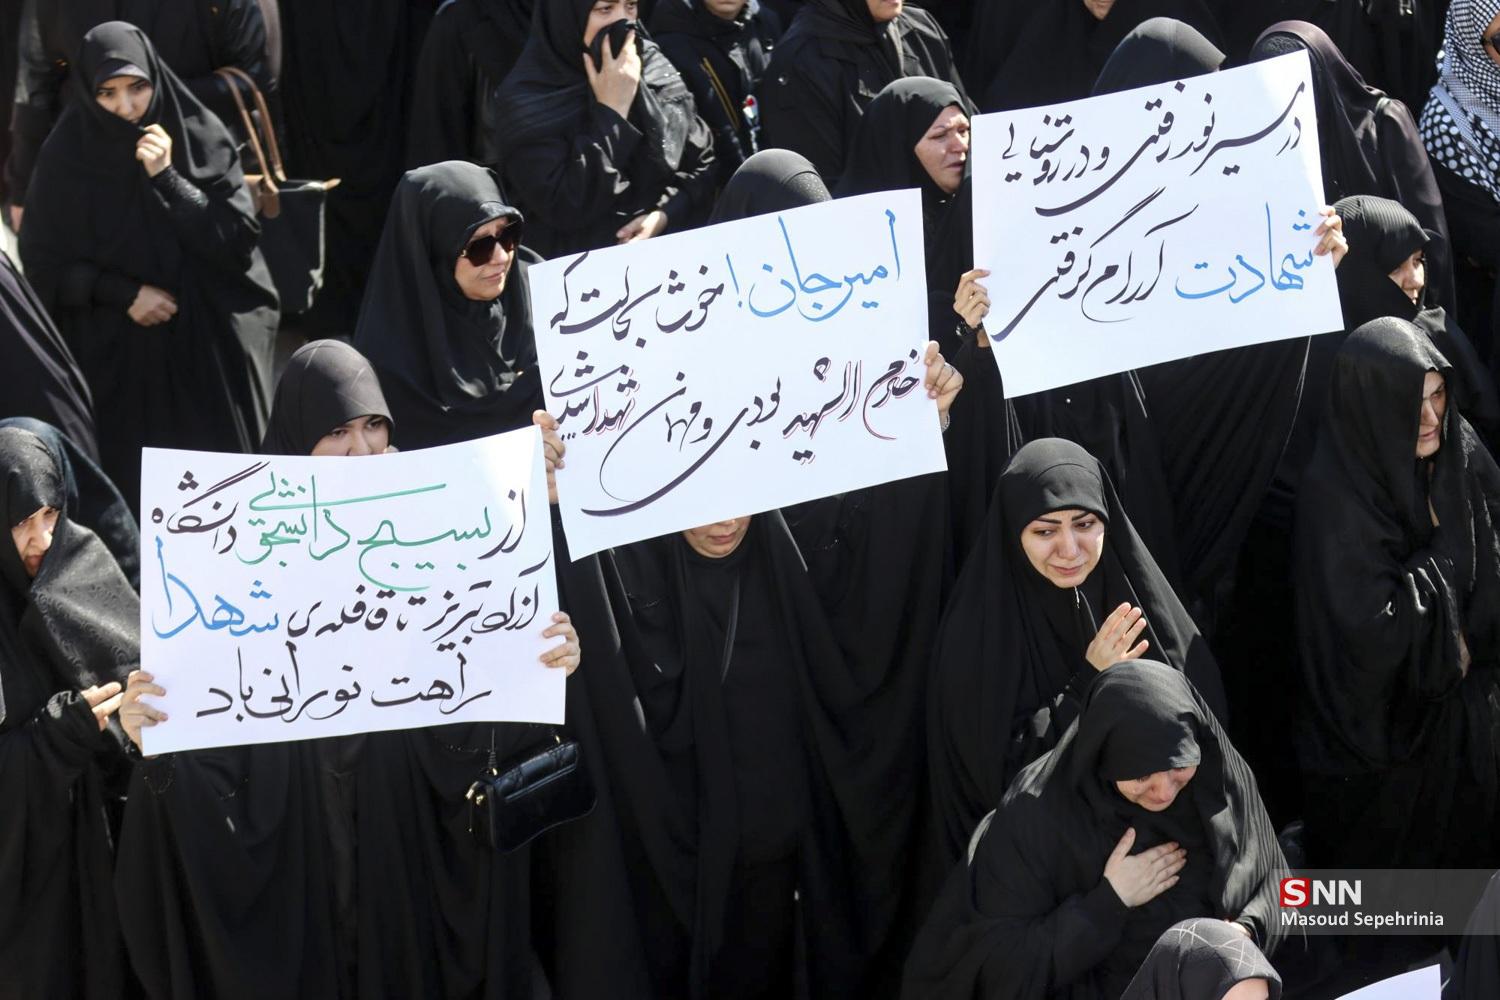 در مسیر نور رفتی و در روشنایی
شهادت آرام گرفتی
امیر جان! خوش بحالت که
خادم الشهید بودی و مهمان شهدا شدی
از بسیج دانشجویی دانشگاه
آزاد تبریز تا قافله‌ی شهدا
راهت نورانی باد
SNN
Masoud Sepehrinia